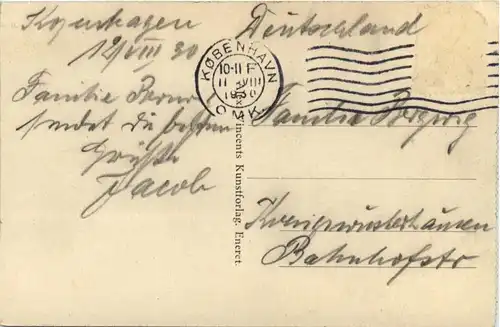 Kopenhagen
12/VIII 30
Familie
sendet die besten
Grüße
Jacob
Deutschland
KØBENHAVN
10-11 F
11 VIII
1930
OMK.
Vincents Kunstforlag. Eneret.
Familie
Königswusterhausen
Bahnhofstr